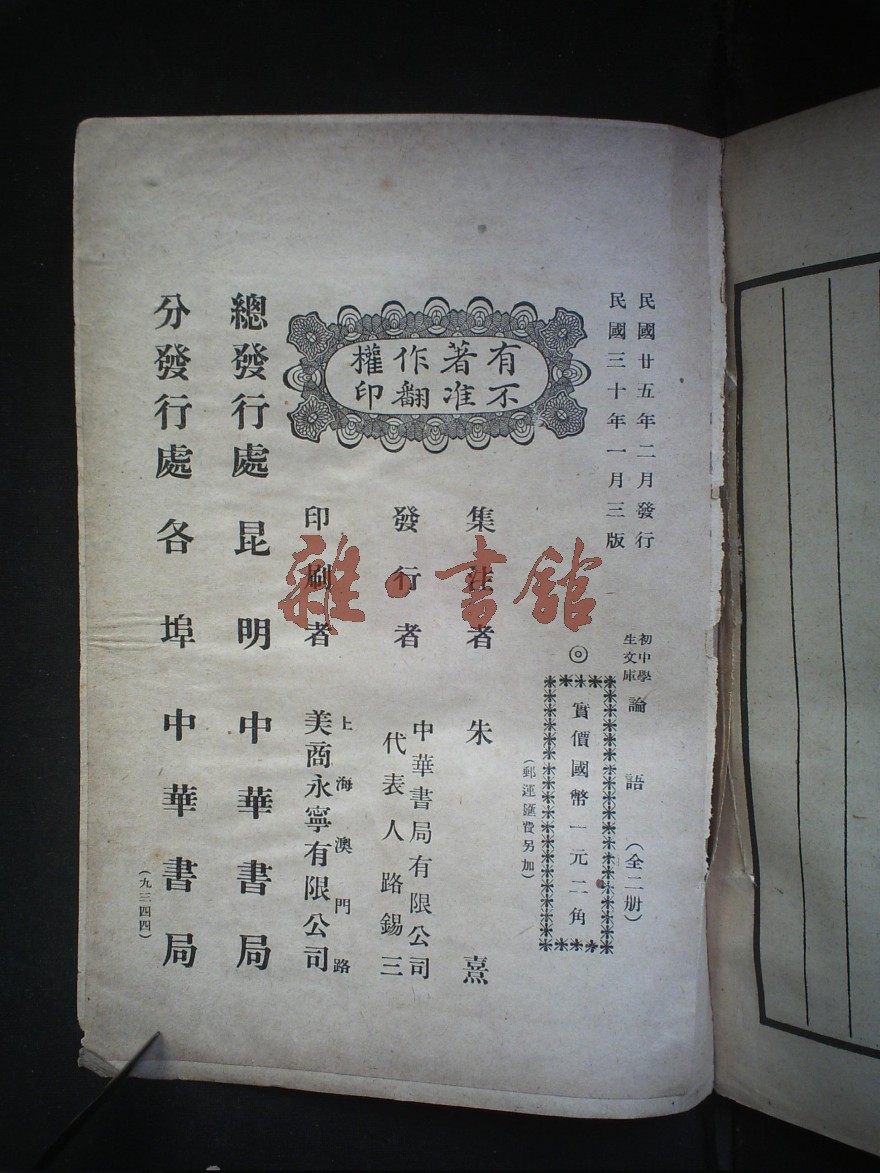 民國廿五年二月發行
民國三十年一月三版
初中學
生文庫
論語（全二册）
◎
實價國幣一元二角
（郵運匯費另加）
有著作權
不准翻印
集注者 朱熹
發行者
中華書局有限公司
代表人路錫三
印刷者
上海澳門路
美商永寧有限公司
總發行處 昆明 中華書局
分發行處 各埠 中華書局
（九三四四）
雜·書館